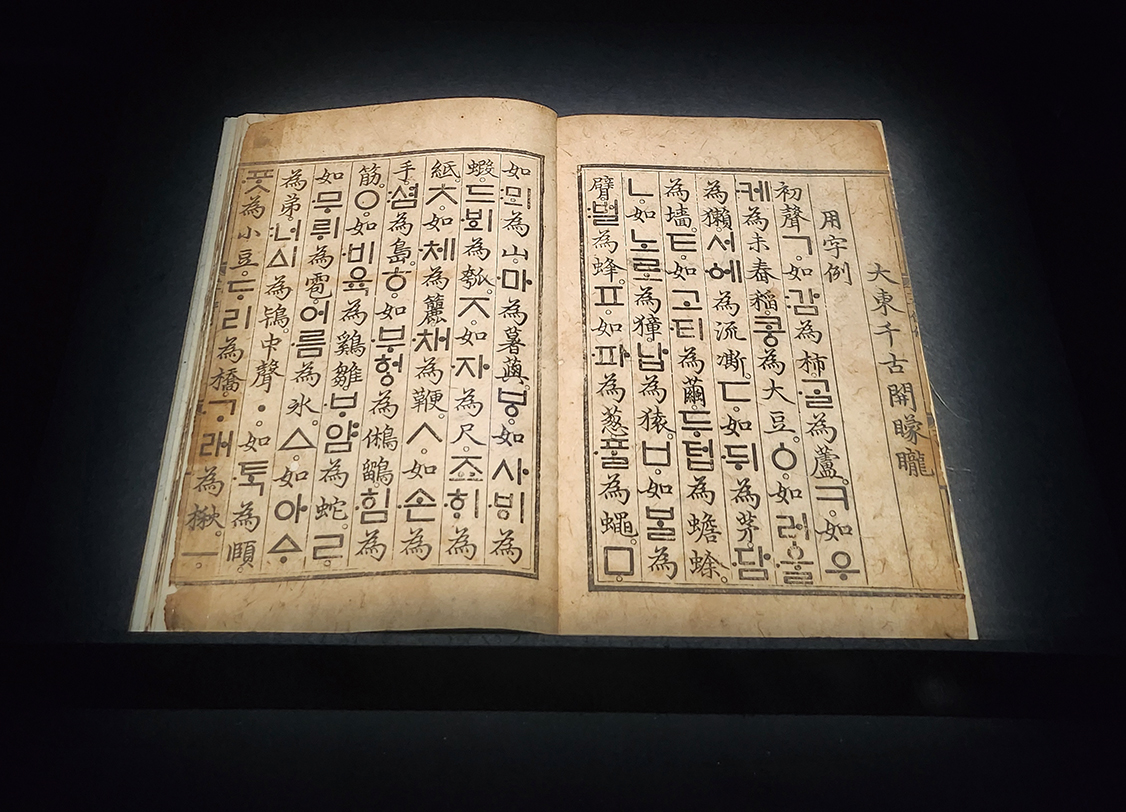 大東千古開矇矓
用字例
初聲ㄱ。如:감為柿。·ᄀᆞᆯ為蘆。ㅋ。如우
·케為未舂稻。콩為大豆。ㆁ。如러·울
為獺。서·에為流凘。ㄷ。如·뒤為茅。·담
為墻。ㅌ。如고·티為繭。두텁為蟾蜍。
ㄴ。如노로為獐。납為猿。ㅂ。如ᄇᆞᆯ為
臂。:벌為蜂。ㅍ。如·파為葱。·ᄑᆞᆯ為蠅。ㅁ。
如:뫼為山。·마為薯藇。ㅸ。如사·ᄫᅵ為
蝦。드·ᄫᅴ為瓠。ㅈ。如·자為尺。죠·ᄒᆡ為
紙。ㅊ。如·체為籭。·채為鞭。ㅅ。如·손為
手。:셤為島。ㅎ。如·부헝為鵂鶹。·힘為
筋。ㅇ。如·비육為鷄雛。·ᄇᆞ얌為蛇。ㄹ。
如·무뤼為雹。어·름為氷。ㅿ。如아ᅀᆞ
為弟。:너ᅀᅵ為鴇。中聲ㆍ。如·ᄐᆞᆨ為頤。
·ᄑᆞᆺ為小豆。ᄃᆞ리為橋。·ᄀᆞ래為楸。ㅡ。